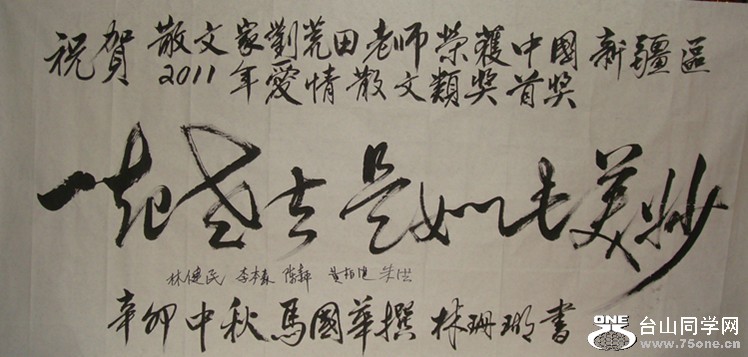 祝賀 散文家劉荒田老师榮獲中國 新疆區
2011 年愛情散文類獎首獎
一起老去是如此美妙
林健民
辛卯中秋馬國華撰 林珊瑚書
ONE 台山同学网
www.75one.cn